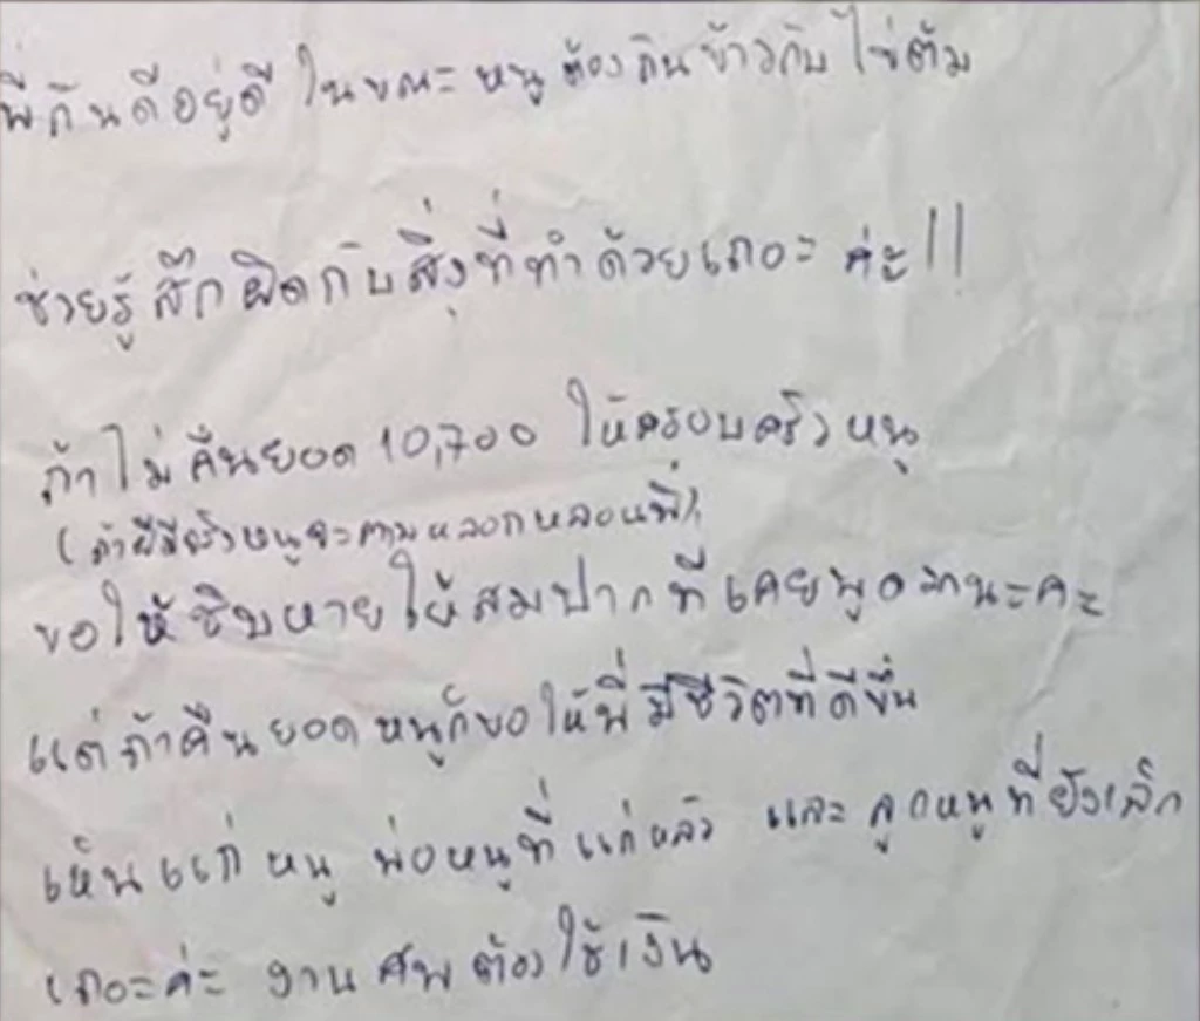 พี่กินดีอยู่ดี ในขณะ หนูต้องกินข้าวกับไข่ต้ม
ช่วยรู้สึกผิดกับสิ่งที่ทำด้วยเถอะ ค่ะ!!
ถ้าไม่คืนยอด 10,700 ให้ครอบครัวหนู
(ถ้าผีมีจริงหนูจะตามหลอกหลอนพี่)
ขอให้ชิบหายให้สมปากที่เคยพูดมานะคะ
แต่ถ้าคืนยอดหนูก็ขอให้พี่มีชีวิตที่ดีขึ้น
เห็นแก่หนู พ่อหนูที่แก่แล้ว และ ลูกหนูที่ยังเล็ก
เถอะค่ะ งานศพต้องใช้เงิน